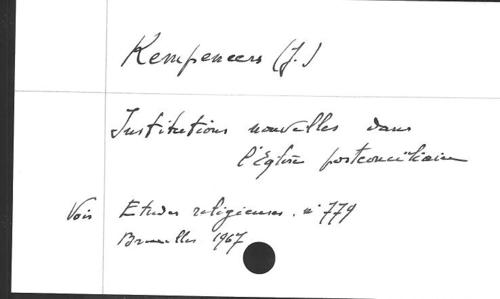 Kempeneers (J.)
Institutions nouvelles dans
l'Eglise postconciliaire
Voir Etudes religieuses. n° 779
Bruxelles 1967